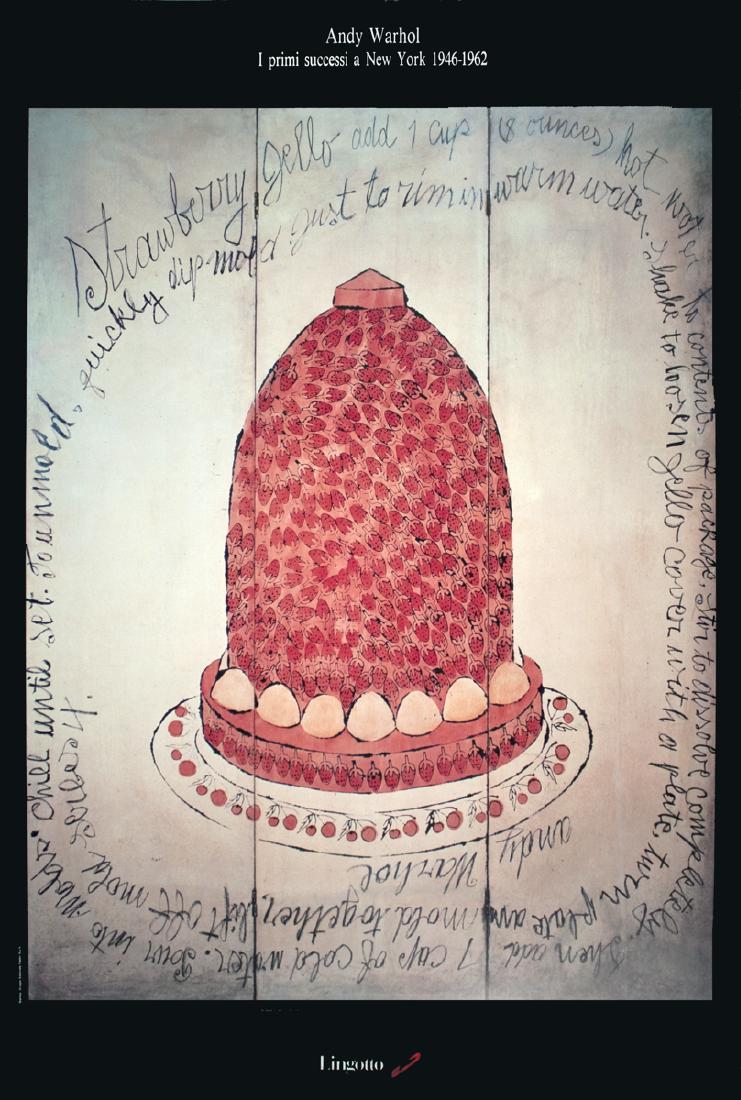 Andy Warhol
I primi successi a New York 1946-1962
Strawberry Jello add 1 cup (8 ounces) hot water to contents of package. Stir to dissolve completely. Then add 1 cup of cold water. Pour into molds. Chill until set. To unmold,
quickly dip mold just to rim in warm water. Shake to loosen Jello cover with a plate. turn plate and mold together, lift off mold serves 4.
andy
Warhol
Lingotto